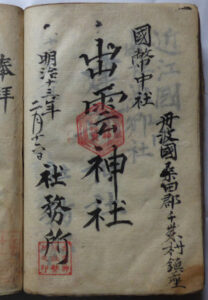 丹波國桑田郡千歳村鎮座
國幣中社
出雲神社
明治十三年
二月
社務所
奉拝